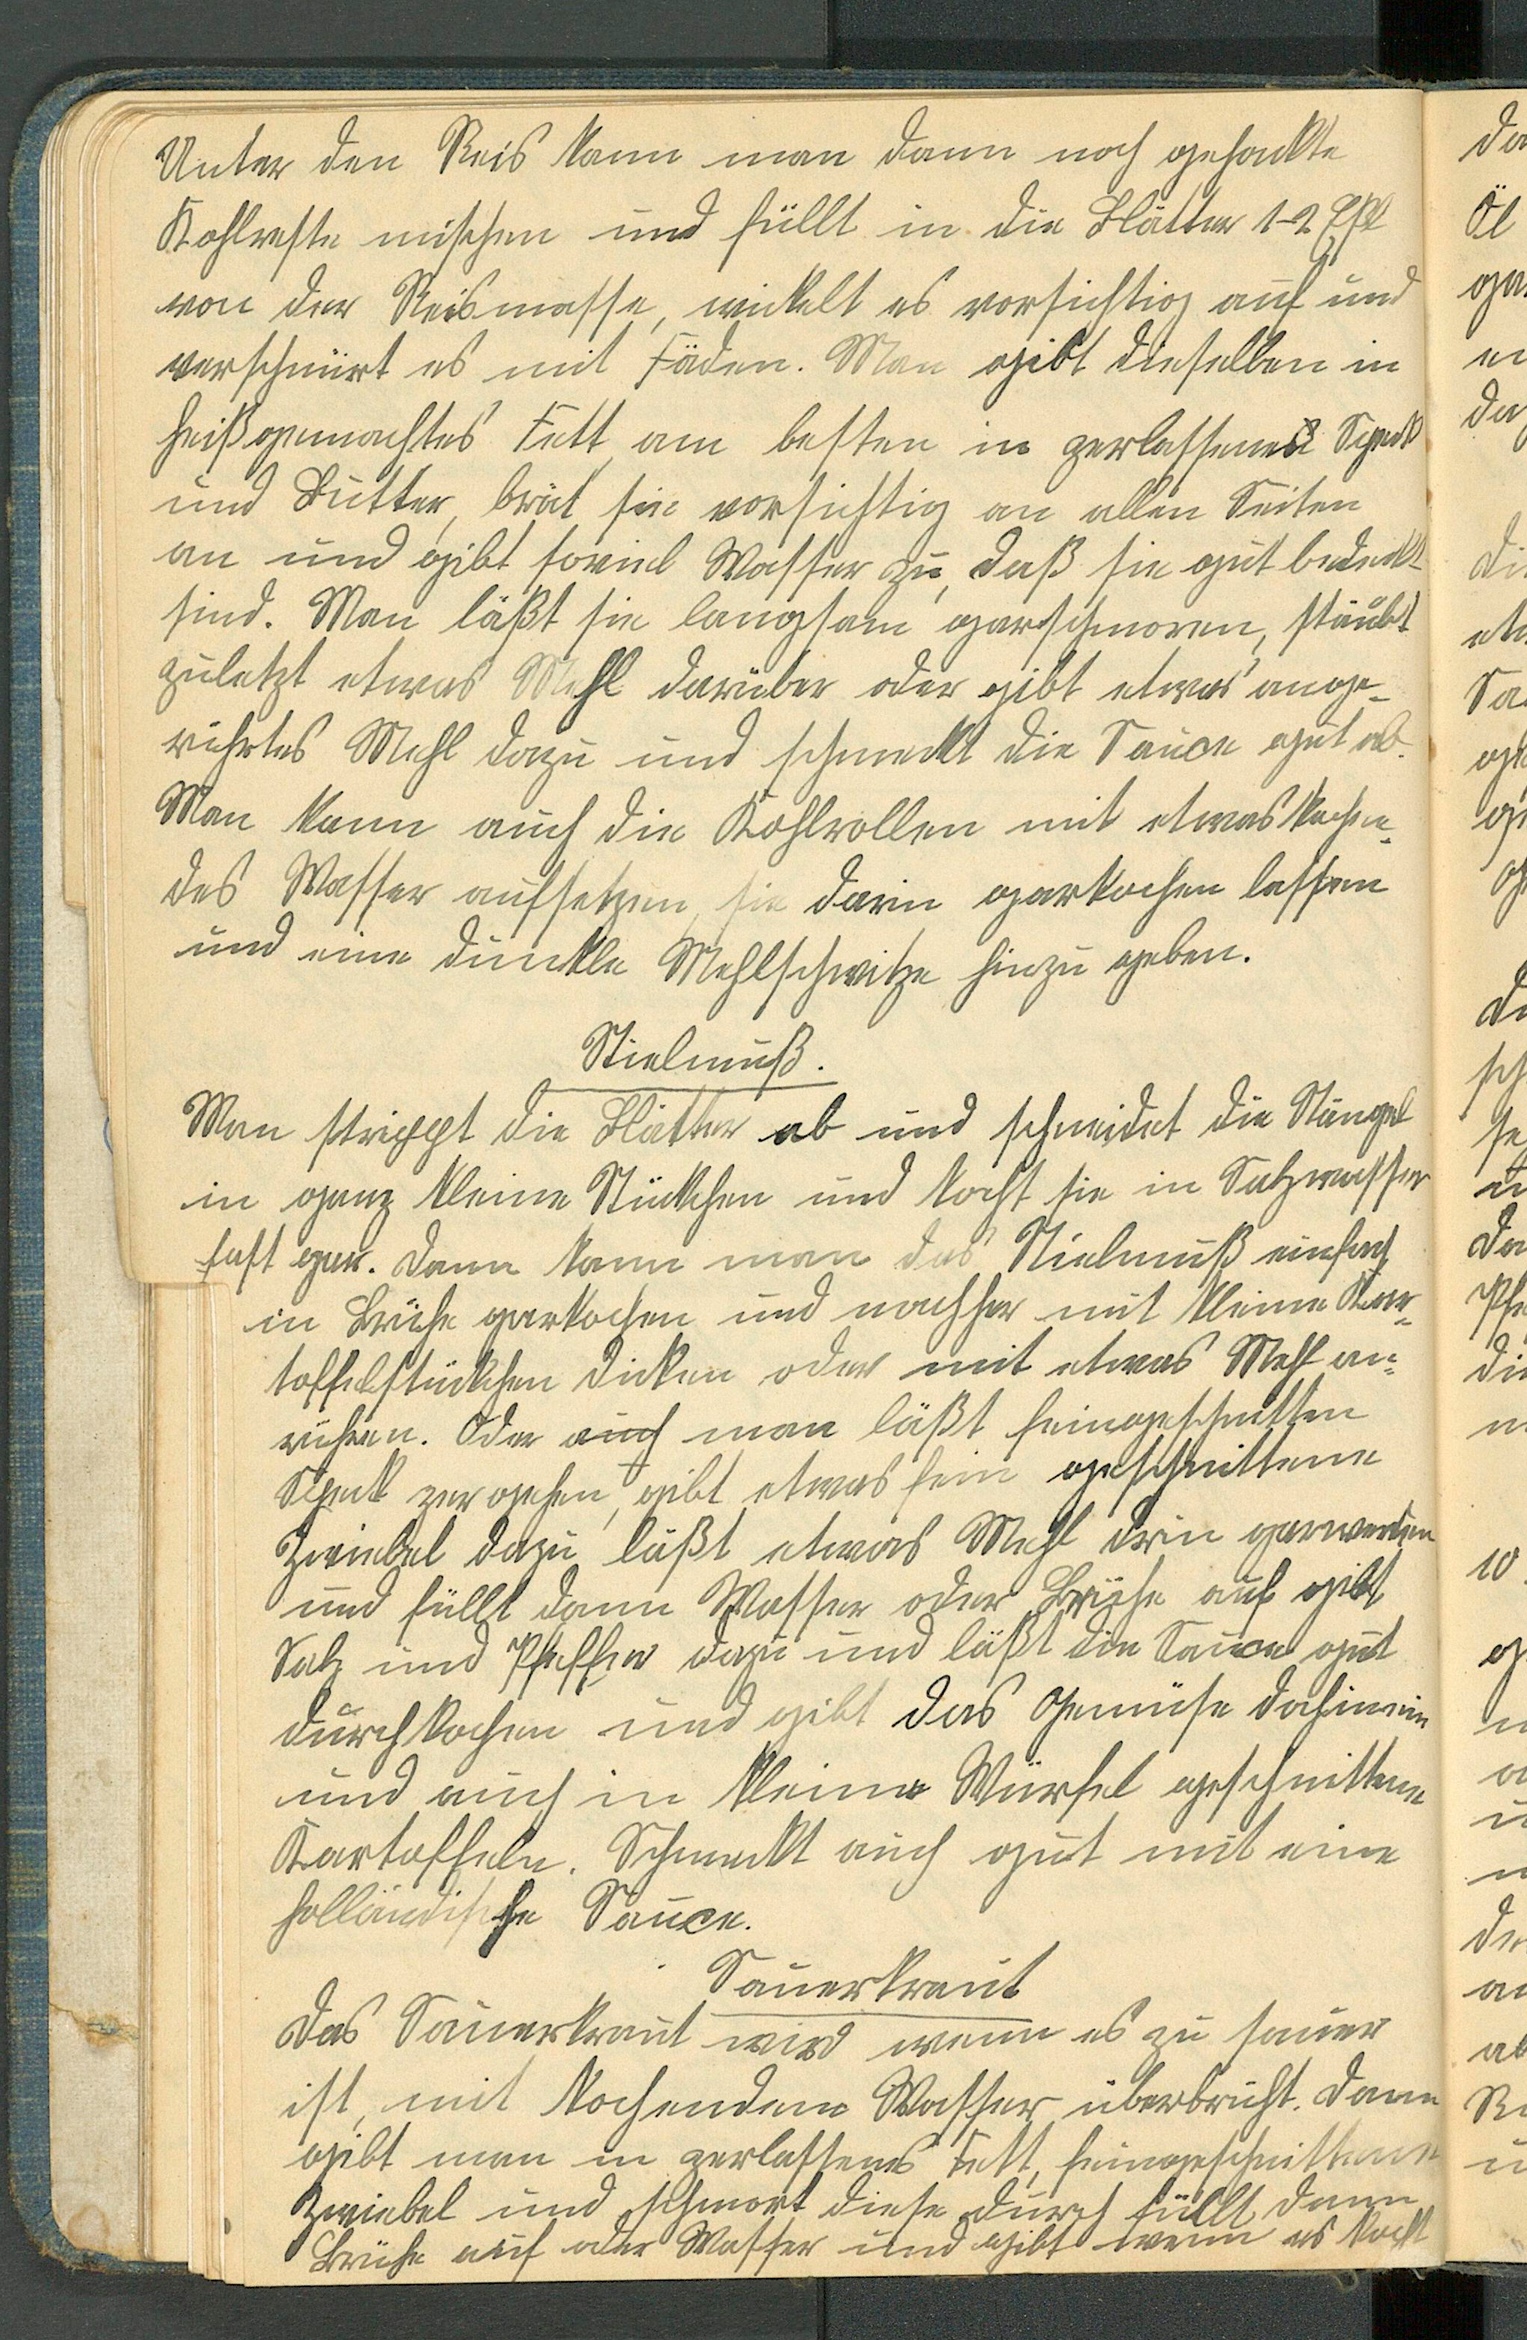 Unter den Reis kann man dann noch gehackte
Kohlreste mischen und füllt in die Blätter 1-2 Eßl
von der Reismasse, wickelt es vorsichtig auf und
verschnürt es mit Fäden. Man gibt dieselben in
heißgemachtes Fett am besten in zerlassenes Speck
und Butter, brät sie vorsichtig an allen Seiten
an und gibt soviel Wasser zu, daß sie gut bedeckt
sind. Man läßt sie langsam garschmoren, stäubt
zuletzt etwas Mehl darüber oder gibt etwas ange-
rührtes Mehl dazu und schmeckt die Sauce gut ab.
Man kann auch die Kohlrollen mit etwas kochen-
des Wasser aufsetzen, sie darin garkochen lassen
und eine dunkle Mehlschwitze hinzu geben.
Stielmuß.
Man strippt die Blätter ab und schneidet die Stängel
in ganz kleine Stückchen und kocht sie in Salzwasser
fast gar. Dann kann man das Stielmuß einfach
in Brühe garkochen und nachher mit kleine Kar-
toffelstückchen dicken oder mit etwas Mehl an-
rühren. Oder auch man läßt feingeschnitten
Speck zergehen, gibt etwas fein geschnittene
Zwiebel dazu läßt etwas Mehl drin garwerden
und füllt dann Wasser oder Brühe auf gibt
Salz und Pfeffer dazu und läßt die Sauce gut
durchkochen und gibt das Gemüse dahinein
und auch in kleine Würfel geschnittene
Kartoffeln. Schmeckt auch gut mit eine
holländische Sauce.
Sauerkraut
Das Sauerkraut wird wenn es zu sauer
ist, mit kochendem Wasser überbrüht. Dann
gibt man in zerlassenes Fett, feingeschnittene
Zwiebel und schmort diese durch füllt dann
Brühe auf oder Wasser und gibt wenn es kocht